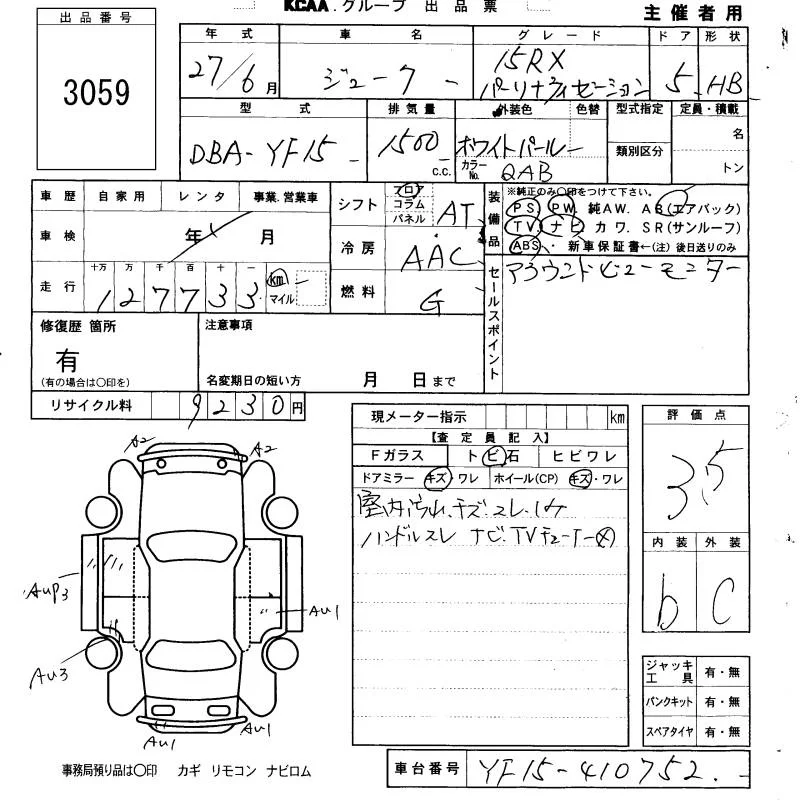 KCAA.グループ 出品票
主催者用
出品番号
3059
年式 車名 グレード ドア 形状
27/6月 ジューク 15RX パーソナライゼーション 5 HB
型式 排気量 外装色 色替 型式指定 定員・積載
DBA-YF15 1500 c.c. ホワイトパール
カラーNo. QAB
類別区分
名
トン
車歴 自家用 レンタ 事業.営業車
車検 年 月
走行 十万 万 千 百 十 一
127733 km マイル
シフト コラム パネル AT
冷房 AAC
燃料 G
装備品
※純正のみ〇印をつけて下さい。
PS PW 純AW. AB(エアバッグ)
TV ナビ カワ. SR(サンルーフ)
ABS・新車保証書←(注)後日送りのみ
セールスポイント
アラウンドビューモニター
修復歴 箇所
有
(有の場合は〇印を)
注意事項
名変期日の短い方 月 日まで
リサイクル料 9230円
現メーター指示 km
【査定員記入】
Fガラス トビ石 ヒビワレ
ドアミラー キズ・ワレ ホイール(CP) キズ・ワレ
室内汚れ.キズ.スレ.
ハンドルスレ ナビ.TVチューナー
評価点
3.5
内装 外装
b C
ジャッキ工具 有・無
パンクキット 有・無
スペアタイヤ 有・無
A2 A2
AUP3
AU1
AU3
AU1 AU1
事務局預り品は〇印 カギ リモコン ナビロム
車台番号 YF15-410752.